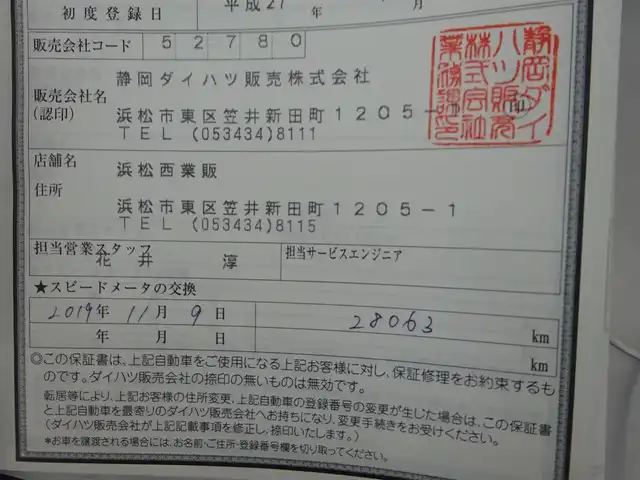 初度登録日 平成27 年 月
販売会社コード 52780
静岡ダイハツ販売株式会社
販売会社名
(認印)
浜松市東区笠井新田町1205-
TEL (053434)8111
静岡ダイハツ販売株式会社
店舗名
浜松西業販
住所
浜松市東区笠井新田町1205-1
TEL (053434)8115
担当営業スタッフ 担当サービスエンジニア
花井 淳
★スピードメータの交換
2019年 11月 9日 28063 km
年 月 日 km
◎この保証書は、上記自動車をご使用になる上記お客様に対し、保証修理をお約束するも
のです。ダイハツ販売会社の捺印の無いものは無効です。
転居等により、上記お客様の住所変更、上記自動車の登録番号の変更が生じた場合は、この保証書
と上記自動車を最寄りのダイハツ販売会社へお持ちになり、変更手続きをお受けください。
(ダイハツ販売会社が上記記載事項を修正し、捺印いたします。)
*お車を譲渡される場合には、お名前・ご住所・登録番号欄を切り取ってください。